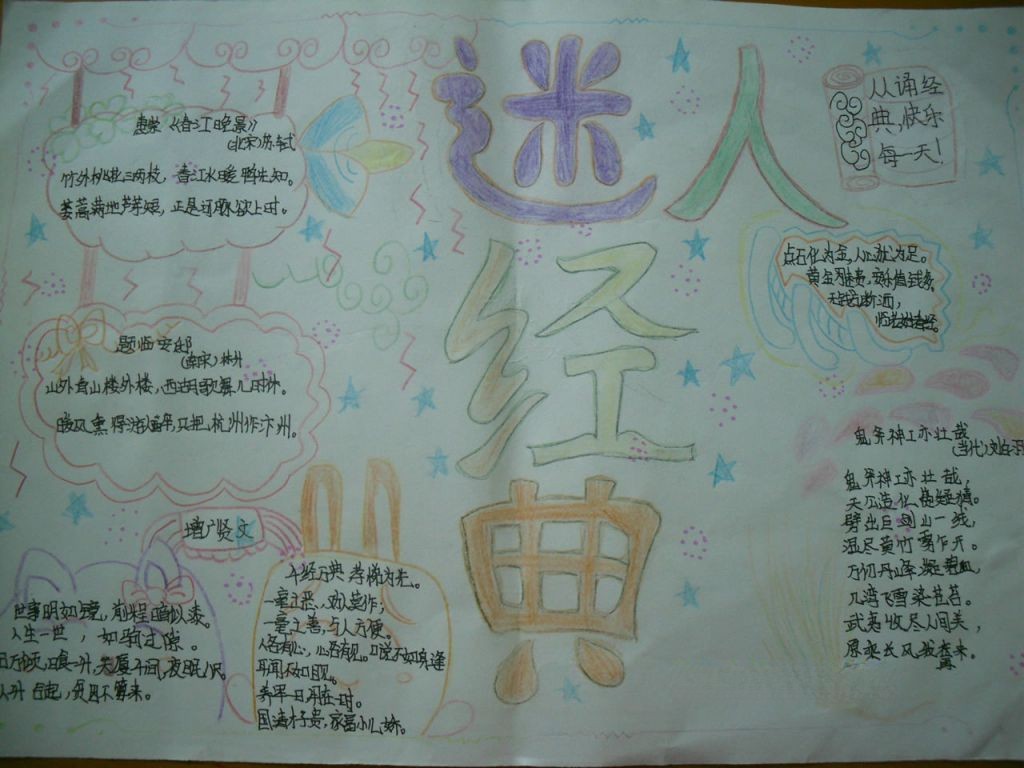 迷人
经典
从诵经
典,快乐
每一天!
惠崇《春江晚景》
(北宋)苏轼
竹外桃花三两枝，春江水暖鸭先知。
蒌蒿满地芦芽短，正是河豚欲上时。
题临安邸
(南宋)林升
山外青山楼外楼，西湖歌舞几时休。
暖风熏得游人醉，只把杭州作汴州。
点石化为金，人心犹为足。
黄金
鬼斧神工亦壮哉
(当代)
鬼斧神工亦壮哉，
天公造化
劈出巨 山一线，
温尽黄竹 作开。
万仞丹山
几湾飞雪染苍苔。
武夷收尽人间美，
愿乘长风我再来。
增广贤文
世事明如镜，前程暗似漆。
人生一世，如驹过隙。
日食一升，大厦千间，夜眠八尺。
千经万典，孝悌为先。
一毫之恶，劝人莫作；
一毫之善，与人方便。
耳闻不如目见。
养军千日，用在一时。
国清才子贵，家富小儿娇。